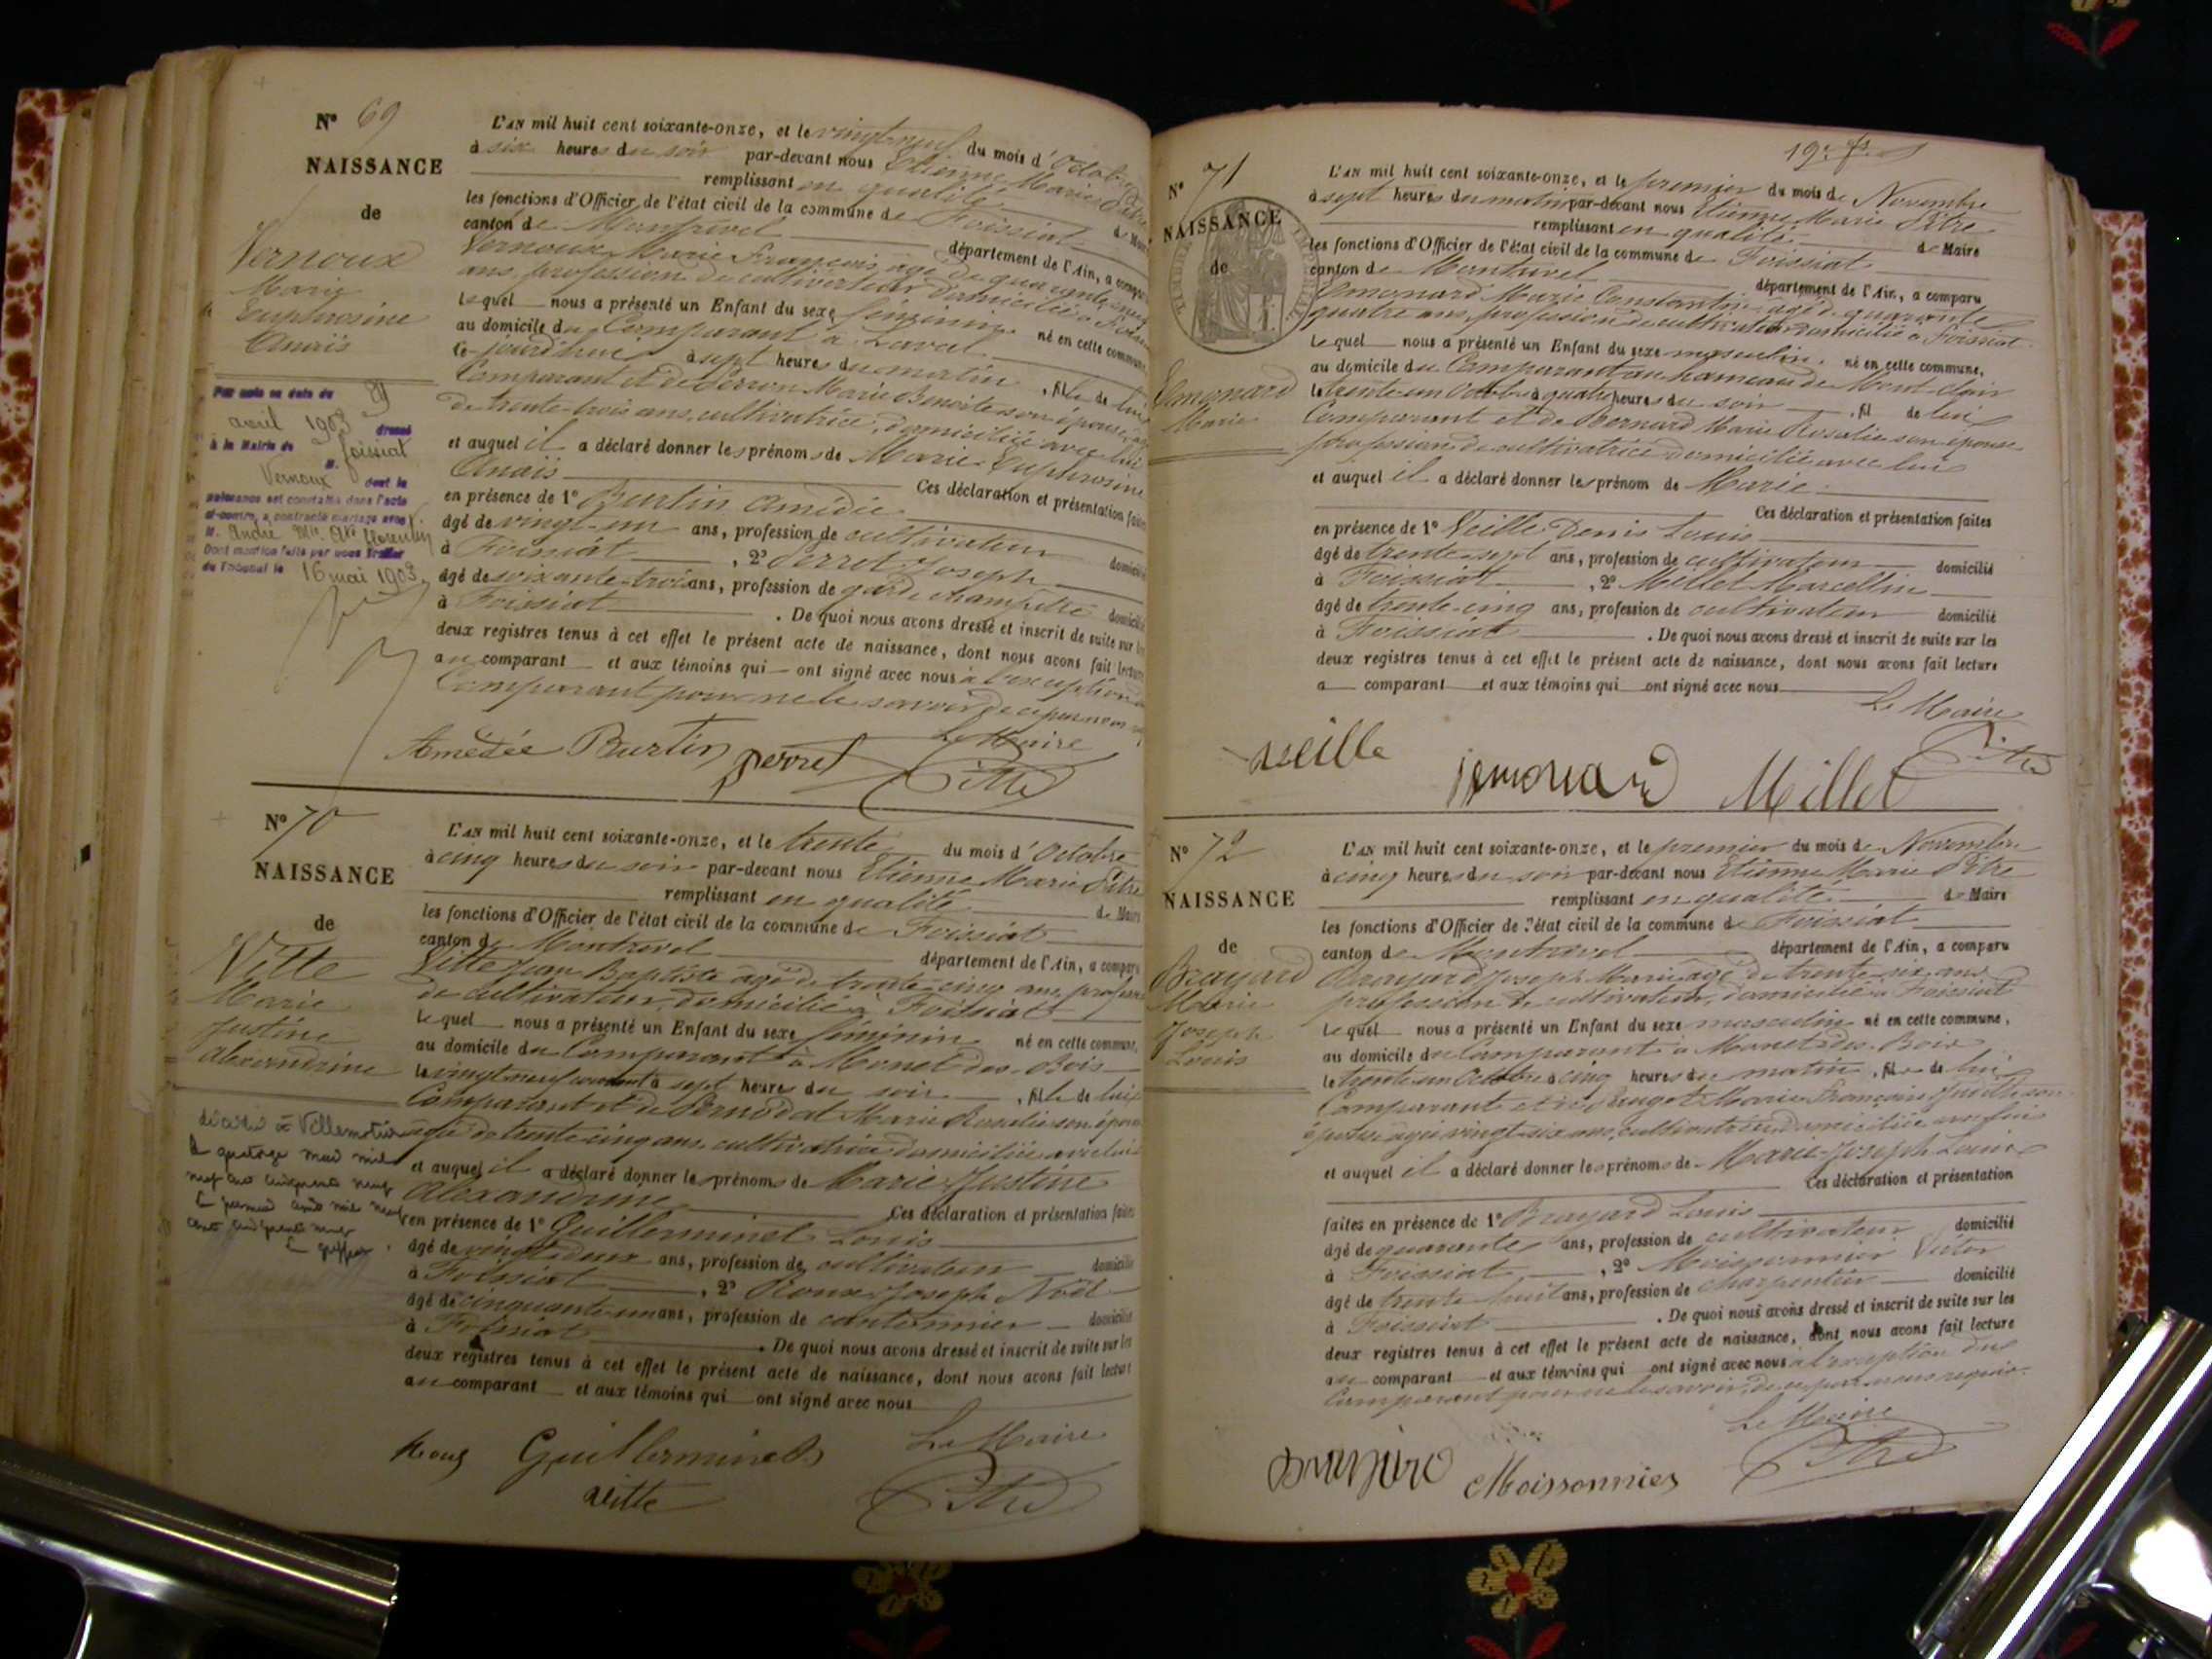 N° 69
NAISSANCE
de
Vernoux
Marie
Euphrosine
Anaïs
Par acte en date du 29
avril 1903 dressé
à la Mairie de Foissiat
M. Vernoux dont la
naissance est constatée dans l'acte
ci-contre, a contracté mariage avec
M. André Mie Florentin
Dont mention faite par nous Greffier
du Tribunal le 16 mai 1903
L'AN mil huit cent soixante-onze, et le vingt neuf du mois d'Octobre
à six heures du soir par-devant nous Etienne Marie Pitre
remplissant en qualité de Maire
les fonctions d'Officier de l'état civil de la commune de Foissiat
canton de Montrevel département de l'Ain, a comparu
Vernoux Marie François âgé de quarante
ans, profession de cultivateur domicilié à Foissiat
Lequel nous a présenté un Enfant du sexe féminin né en cette commune
au domicile du Comparant à Laval
le jourd'hui à sept heures du matin, fille de lui
Comparant et de Perron Marie Benoite son épouse, âgée
de trente-trois ans, cultivatrice, domiciliée avec lui
et auquel il a déclaré donner les prénoms de Marie Euphrosine
Anaïs Ces déclaration et présentation faites
en présence de 1° Burtin Amédée
âgé de vingt-un ans, profession de cultivateur domicilié
à Foissiat, 2° Perret Joseph
âgé de soixante-trois ans, profession de garde champêtre domicilié
à Foissiat. De quoi nous avons dressé et inscrit de suite sur les
deux registres tenus à cet effet le présent acte de naissance, dont nous avons fait lecture
au comparant et aux témoins qui ont signé avec nous à l'exception du
Comparant pour ne le savoir de ce par nous
Le Maire
Amédée Burtin Perret Pitre
N° 70
NAISSANCE
de
Vitte
Marie
Justine
Alexandrine
décédée à Villemotier
le quatorze mars mil
neuf cent cinquante neuf
Le premier avril mil neuf
cent cinquante neuf
Le greffier.
L'AN mil huit cent soixante-onze, et le trente du mois d'Octobre
à cinq heures du soir par-devant nous Etienne Marie Pitre
remplissant en qualité de Maire
les fonctions d'Officier de l'état civil de la commune de Foissiat
canton de Montrevel département de l'Ain, a comparu
Vitte Jean Baptiste âgé de trente-cinq ans, profession
de cultivateur, domicilié à Foissiat
Lequel nous a présenté un Enfant du sexe féminin né en cette commune,
au domicile du Comparant à Monet des Bois
le vingt neuf courant à sept heures du soir, fille de lui
Comparant et de Pernodat Marie Roselie son épouse
âgée de trente cinq ans, cultivatrice domiciliée avec lui
et auquel il a déclaré donner les prénoms de Marie Justine
Alexandrine Ces déclaration et présentation faites
en présence de 1° Guillerminet Louis
âgé de vingt deux ans, profession de cultivateur domicilié
à Foissiat, 2° Roux Joseph Noël
âgé de cinquante-un ans, profession de cantonnier domicilié
à Foissiat. De quoi nous avons dressé et inscrit de suite sur les
deux registres tenus à cet effet le présent acte de naissance, dont nous avons fait lecture
au comparant et aux témoins qui ont signé avec nous
Roux Guillerminet Le Maire
Vitte Pitre
N° 71
NAISSANCE
de
Emonard
Marie
L'AN mil huit cent soixante-onze, et le premier du mois de Novembre
à sept heures du matin par-devant nous Etienne Marie Pitre
remplissant en qualité de Maire
les fonctions d'Officier de l'état civil de la commune de Foissiat
canton de Montrevel département de l'Ain, a comparu
Emonard Marie Constantin âgé de quarante
quatre ans, profession de cultivateur domicilié à Foissiat.
Lequel nous a présenté un Enfant du sexe masculin né en cette commune,
au domicile du Comparant au hameau de Mont-clair
le trente un Octobre à quatre heures du soir, fil de lui
Comparant et de Bernard Marie Rosalie son épouse
profession de cultivatrice domiciliée avec lui
et auquel il a déclaré donner le prénom de Marie
Ces déclaration et présentation faites
en présence de 1° Veille Denis Louis
âgé de trente-sept ans, profession de cultivateur domicilié
à Foissiat, 2° Millet Marcellin
âgé de trente-cinq ans, profession de cultivateur domicilié
à Foissiat. De quoi nous avons dressé et inscrit de suite sur les
deux registres tenus à cet effet le présent acte de naissance, dont nous avons fait lecture
a comparant et aux témoins qui ont signé avec nous
Le Maire
veille Emonard Millet Pitre
N° 72
NAISSANCE
de
Brayard
Marie
Joseph
Louis
L'AN mil huit cent soixante-onze, et le premier du mois de Novembre
à cinq heures du soir par-devant nous Etienne Marie Pitre
remplissant en qualité de Maire
les fonctions d'Officier de l'état civil de la commune de Foissiat
canton de Montrevel département de l'Ain, a comparu
Brayard Joseph Marie âgé de trente six ans
profession de cultivateur, domicilié à Foissiat
Lequel nous a présenté un Enfant du sexe masculin né en cette commune,
au domicile du Comparant à Monet des Bois
le trente un Octobre à cinq heures du matin, fils de lui
Comparant et de Marie Françoise son
épouse âgée vingt-six ans, cultivatrice domiciliée avec lui
et auquel il a déclaré donner les prénoms de Marie-Joseph Louis
Ces déclaration et présentation
faites en présence de 1° Brayard Louis
âgé de quarante ans, profession de cultivateur domicilié
à Foissiat, 2° Moissonnier Victor
âgé de trente huit ans, profession de charpentier domicilié
à Foissiat. De quoi nous avons dressé et inscrit de suite sur les
deux registres tenus à cet effet le présent acte de naissance, dont nous avons fait lecture
au comparant et aux témoins qui ont signé avec nous à l'exception du
Comparant pour ne le savoir, de ce par nous requis.
Le Maire
Brayard Moissonnier Pitre